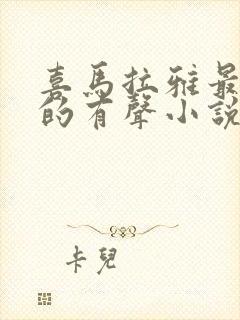 喜馬拉雅最
的有聲小說
卡兒